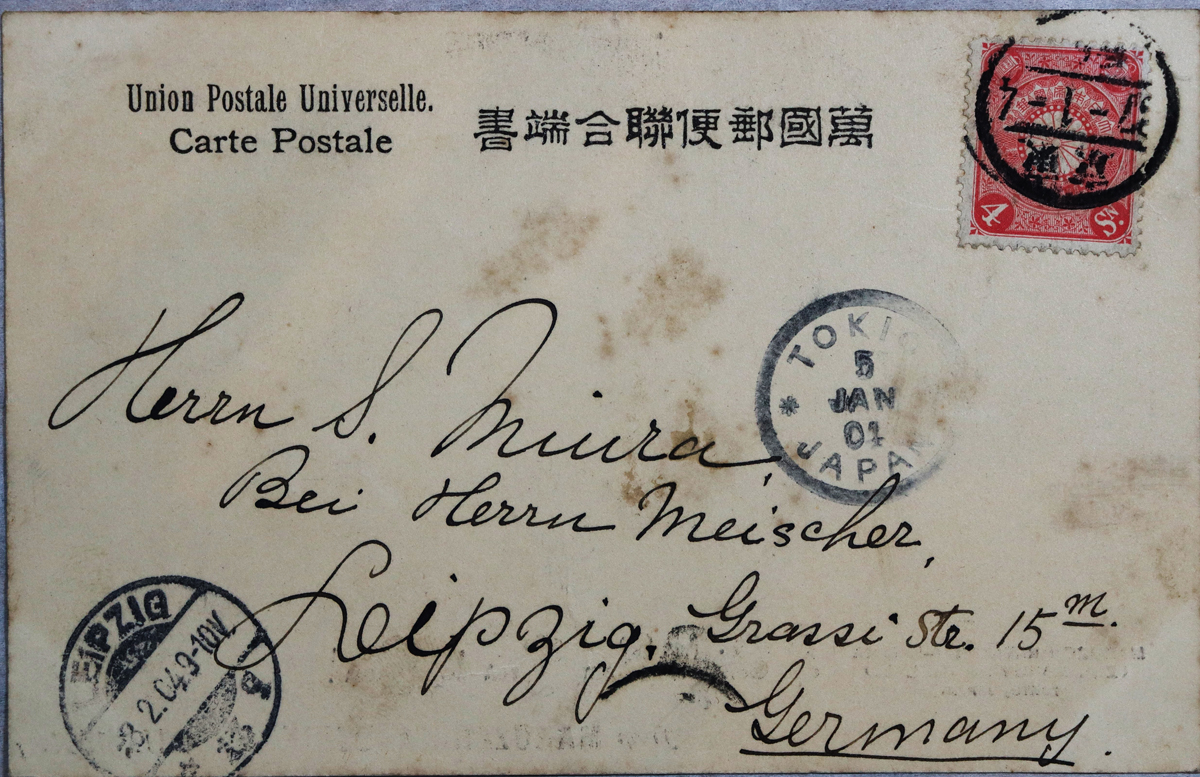 Union Postale Universelle.
Carte Postale
萬國郵便聯合端書
4 Sn.
TOKIO
5
JAN
04
JAPAN
Herrn S. Miura,
Bei Herrn Meischer,
Leipzig. Grassi str. 15 m.
Germany.
LEIPZIG
3.2.04.9-10V.